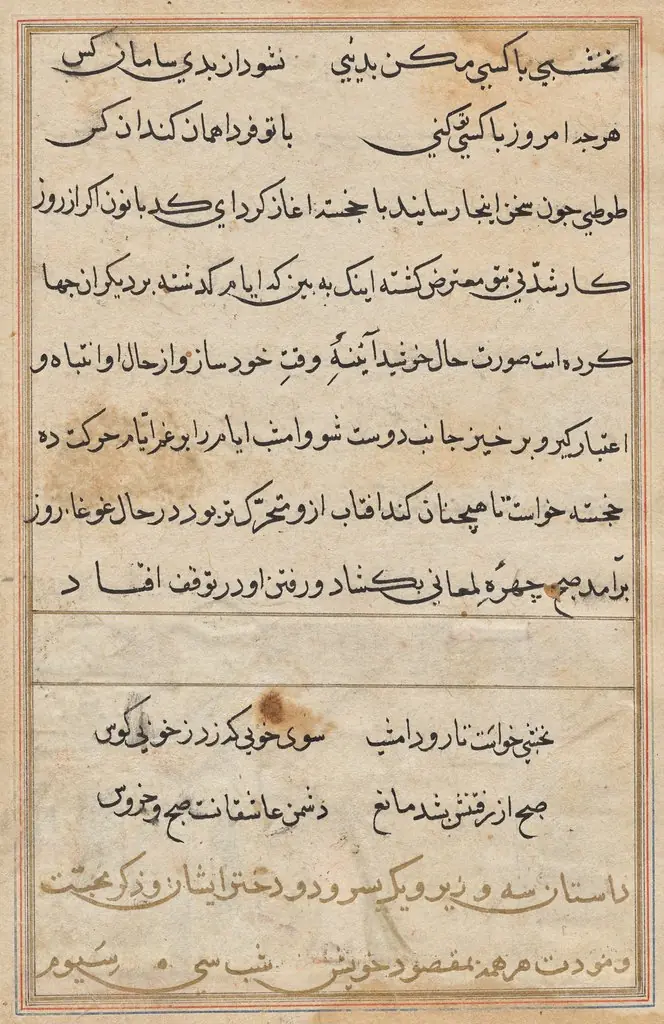 نخشبی با کسی مکن بدیی نشود از بدی سامان کس
هرجه امروز با کسی تو کنی با تو فردا همان کند ان کس
طوطی جون سخن اینجا رسانید با خجسته اغاز کرد ای کدبانو اکر از روز
کار شدّتی بتو معترض کشته اینک به بین که ایام کذشته بر دیکران جها
کرده است صورت حال خوشید آیٔنهٔ وقتِ خود ساز و از حال او انتباه و
اعتبار کیر و بر خیز جانب دوست شو و امشب ایام را بوغم ایّام حرکت ده
خجسته خواست تا همچنان کند افتاب ازو متحرّک تر بود در حال غوغاء روز
برآمد صبح چهرهٔ لمعانی بکشاد و رفتن او در توقف افتاد
نخشبی خواست تا رود امشب سوی خوبی که زد ز خوبی کوس
صبح از رفتنش بشد مانع دشمن عاشقانست صبح و خروس
داستان سه وزیر و یک پسر و دو دختر ایشان و ذکر محبّت
و مودت هر همه بمقصود خویش شب سی و سیوم